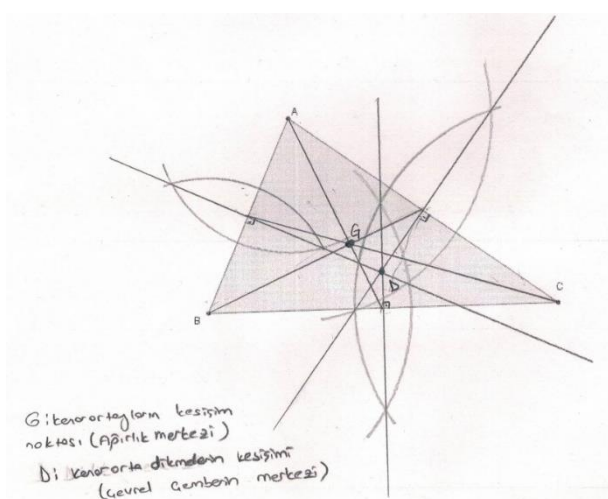 A
G
D
B
C
G: kenarortayların kesişim
noktası (Ağırlık merkezi)
D: kenar orta dikmelerin kesişimi
(Çevrel Çemberin merkezi)